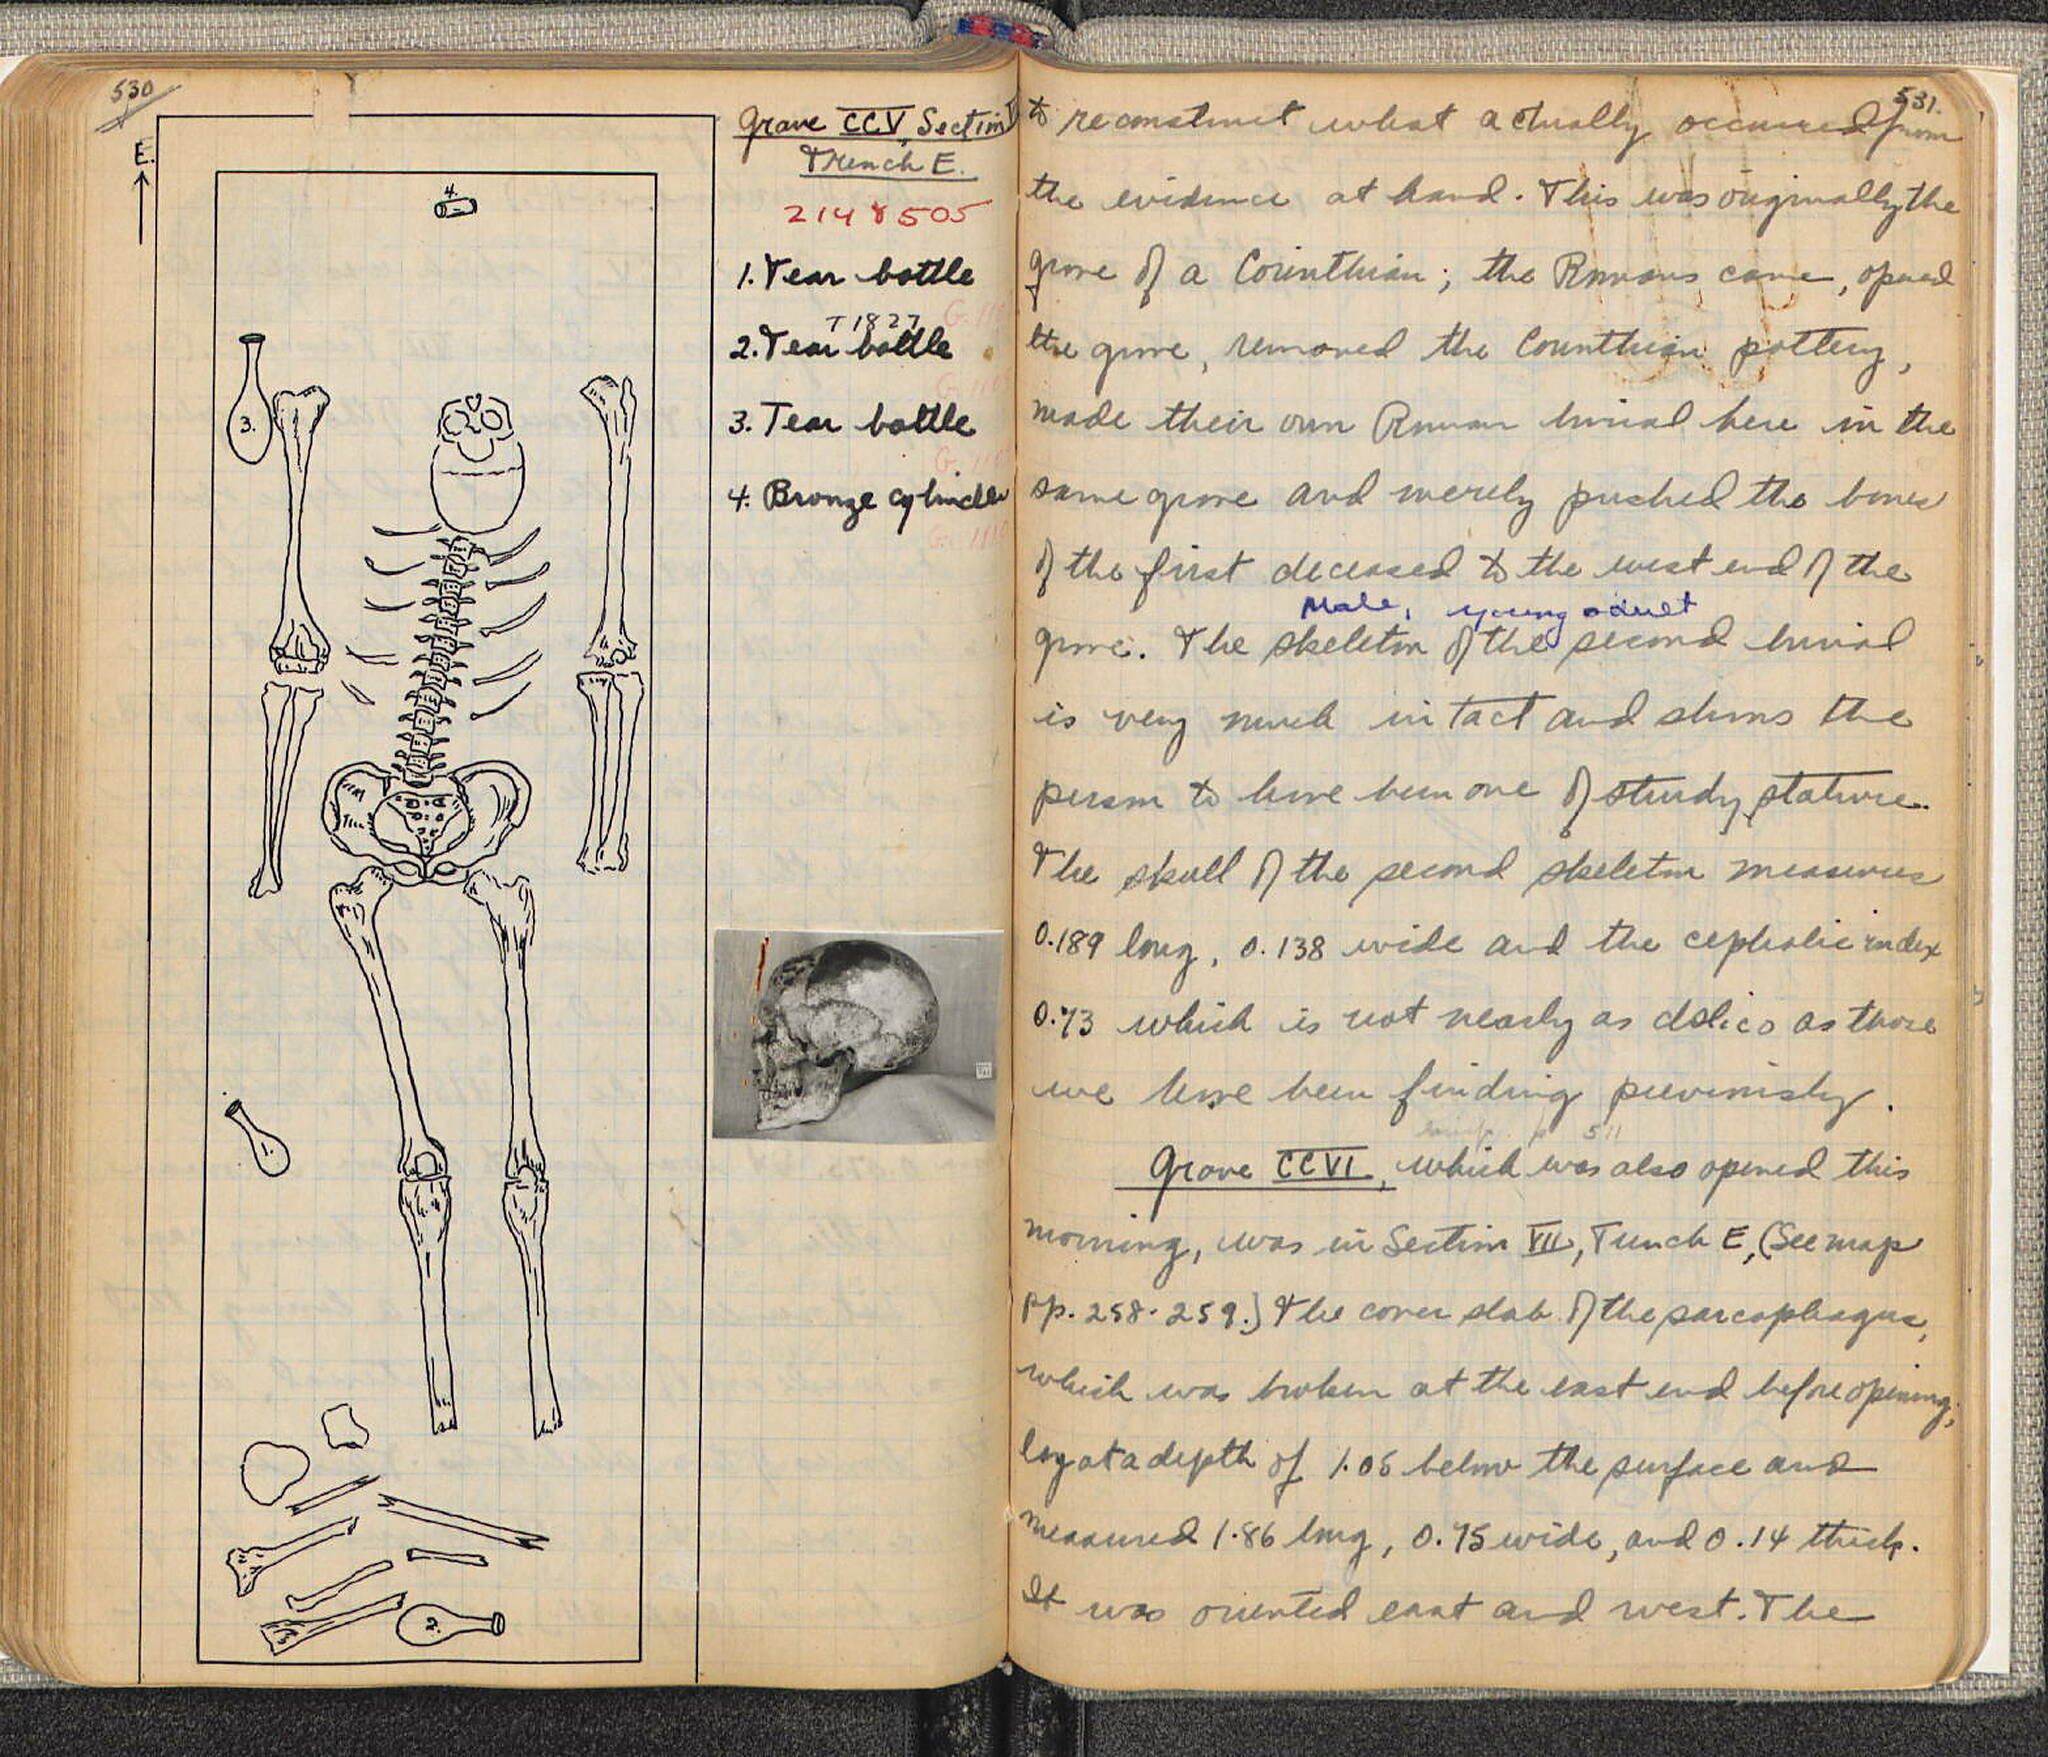 530
E.
4.
3.
2.
Grave CCV, Section
Trench E.
214 & 505
1. Tear bottle
T 1827
2. Tear bottle
3. Tear bottle
4. Bronze cylinder
531.
to reconstruct what actually occurred from
the evidence at hand. This was originally the
grave of a Corinthian; the Romans came, opened
the grave, removed the Corinthian pottery,
made their own Roman burial here in the
same grave and merely pushed the bones
of the first deceased to the west end of the
Male, young adult
grave. The skeleton of the second burial
is very much in tact and shows the
person to have been one of sturdy stature.
The skull of the second skeleton measures
0.189 long, 0.138 wide and the cephalic index
0.73 which is not nearly as dolico as those
we have been finding previously.
p. 511
Grave CCVI, which was also opened this
morning, was in Section VII, Trench E, (See map
pp. 258-259.) The cover slab of the sarcophagus,
which was broken at the east end before opening,
lay at a depth of 1.05 below the surface and
measured 1.86 long, 0.75 wide, and 0.14 thick.
It was oriented east and west. The